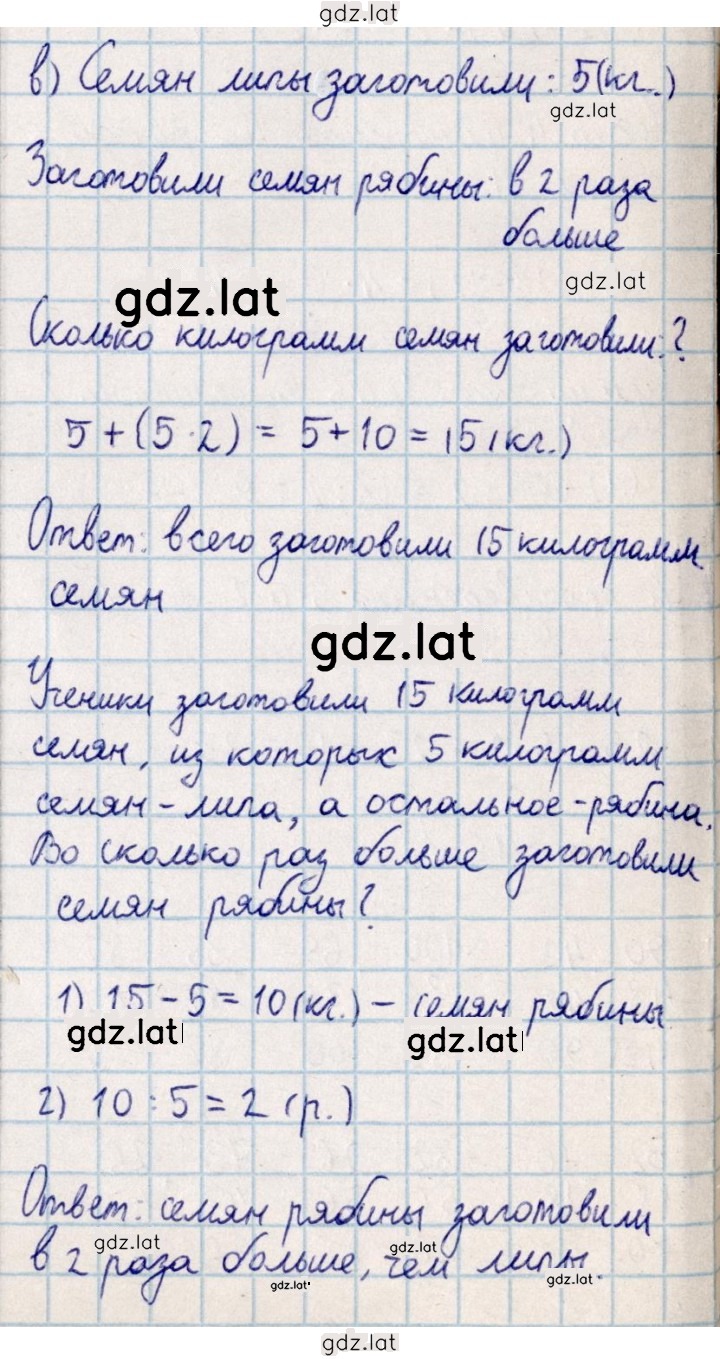 gdz.lat
в) Семян липы заготовили: 5(кг.)
gdz.lat
Заготовили семян рябины: в 2 раза
больше
gdz.lat
gdz.lat
Сколько килограмм семян заготовили:?
5+(5·2) = 5+10 = 15(кг.)
Ответ: всего заготовили 15 килограмм
семян
gdz.lat
Ученики заготовили 15 килограмм
семян, из которых 5 килограмм
семян - липа, а остальное - рябина.
Во сколько раз больше заготовили
семян рябины?
1) 15 - 5 = 10(кг.) - семян рябины
gdz.lat gdz.lat
2) 10 : 5 = 2 (р.)
Ответ: семян рябины заготовили
gdz.lat gdz.lat
в 2 раза больше, чем липы.
gdz.lat gdz.lat
gdz.lat